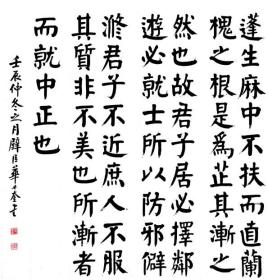 蓬生麻中不扶而直蘭
槐之根是為芷其漸之
然也故君子居必擇鄰
遊必就士所以防邪僻
滫君子不近庶人不服
其質非不美也所漸者
而就中正也
壬辰仲冬之月